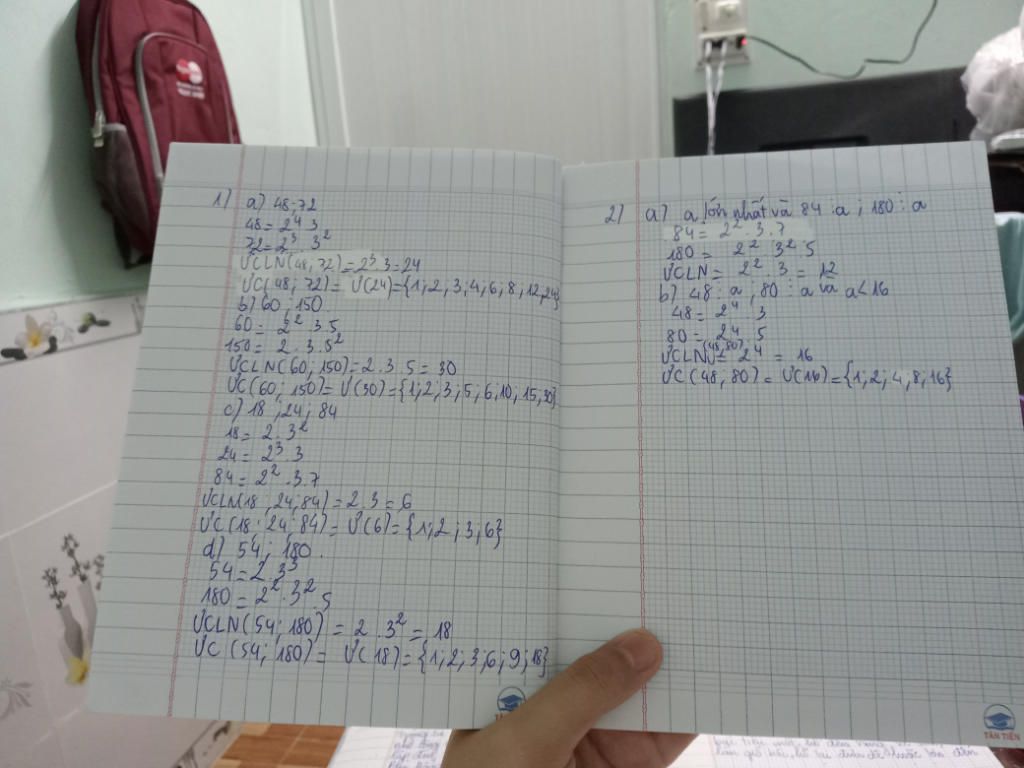 1) a) 48; 72
48 = 2⁴ . 3
72 = 2³ . 3²
ƯCLN(48; 72) = 2³ . 3 = 24
ƯC(48; 72) = Ư(24) = {1; 2; 3; 4; 6; 8; 12; 24}
b) 60 ; 150
60 = 2² . 3 . 5
150 = 2 . 3 . 5²
ƯCLN(60; 150) = 2 . 3 . 5 = 30
ƯC(60; 150) = Ư(30) = {1; 2; 3; 5; 6; 10; 15; 30}
c) 18 ; 24 ; 84
18 = 2 . 3²
24 = 2³ . 3
84 = 2² . 3 . 7
ƯCLN(18; 24; 84) = 2 . 3 = 6
ƯC(18; 24; 84) = Ư(6) = {1; 2; 3; 6}
d) 54 ; 180.
54 = 2 . 3³
180 = 2² . 3² . 5
ƯCLN(54; 180) = 2 . 3² = 18
ƯC(54; 180) = Ư(18) = {1; 2; 3; 6; 9; 18}
TÂN TIẾN
2) a) a lớn nhất và 84 ⋮ a ; 180 ⋮ a
84 = 2² . 3 . 7
180 = 2² 3² . 5
ƯCLN = 2² . 3 = 12
b) 48 ⋮ a ; 80 ⋮ a và a < 16
48 = 2⁴ . 3
80 = 2⁴ . 5
ƯCLN (48,80) = 2⁴ = 16
ƯC(48, 80) = Ư(16) = {1; 2; 4, 8, 16}
TÂN TIẾN